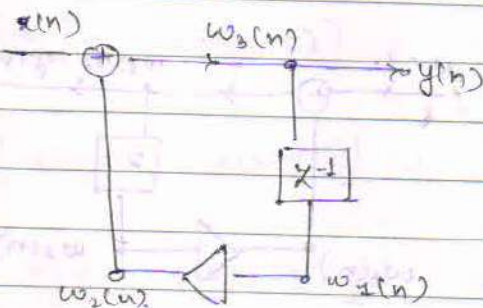 x(n)
w₃(n)
+
y(n)
z⁻¹
w₂(n)
w₁(n)